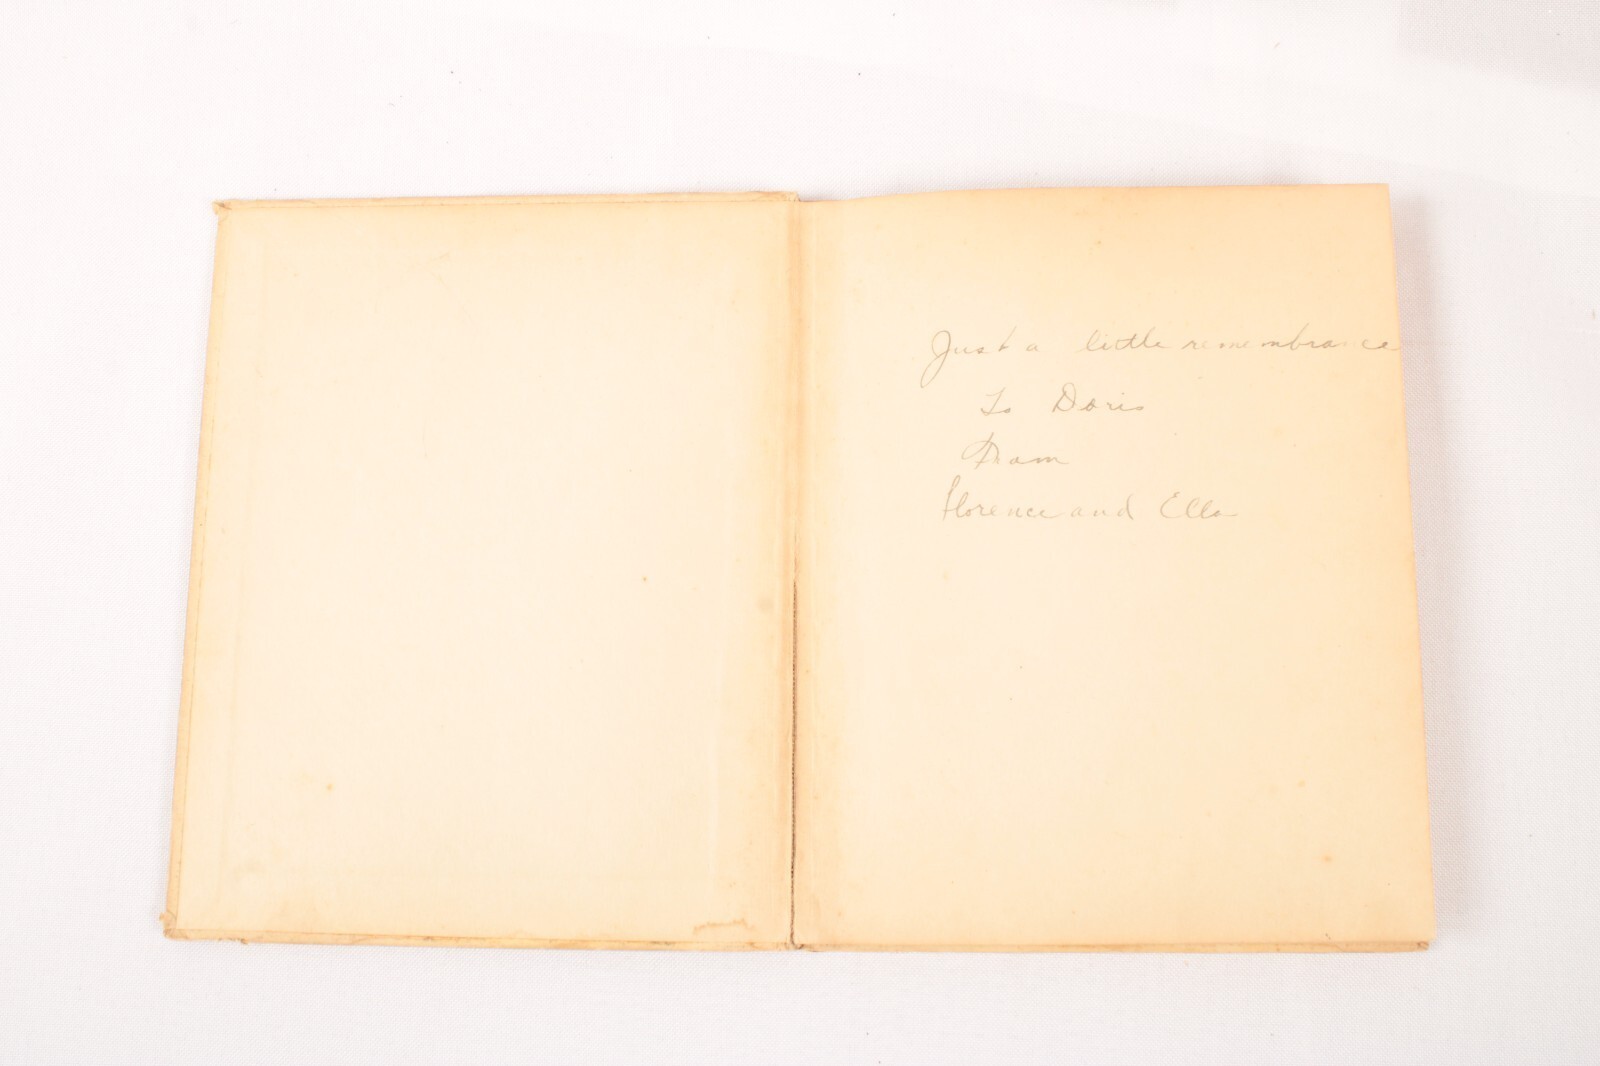 Just a little remembrance
To Doris
From
Florence and Ella